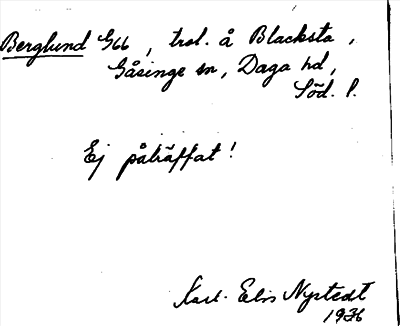 Berglund G66, trol. å Blacksta,
Gåsinge sn, Daga hd,
Söd. l.
Ej påträffat!
Karl-Elis Nystedt
1936